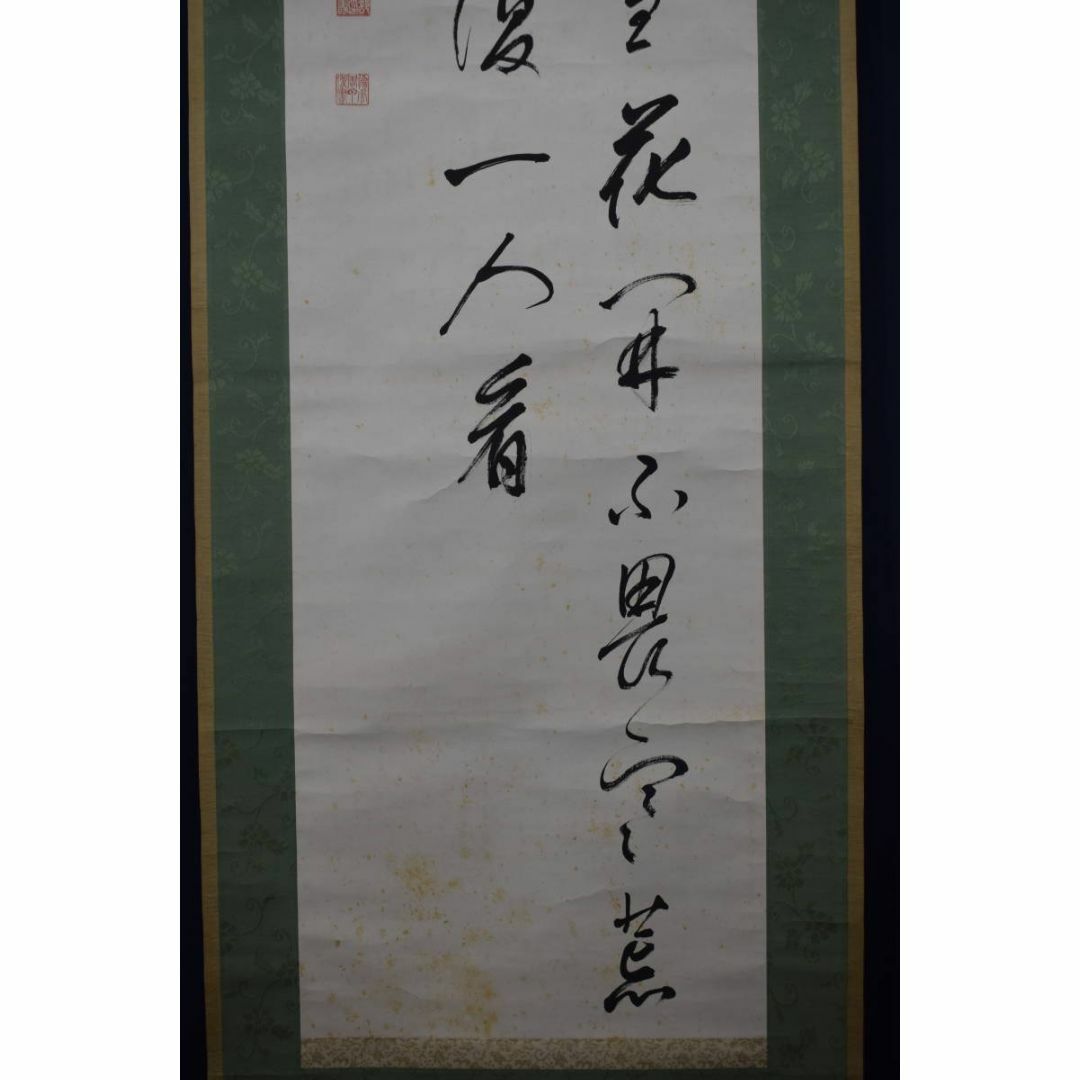 花開不畏寒荒
復一人看